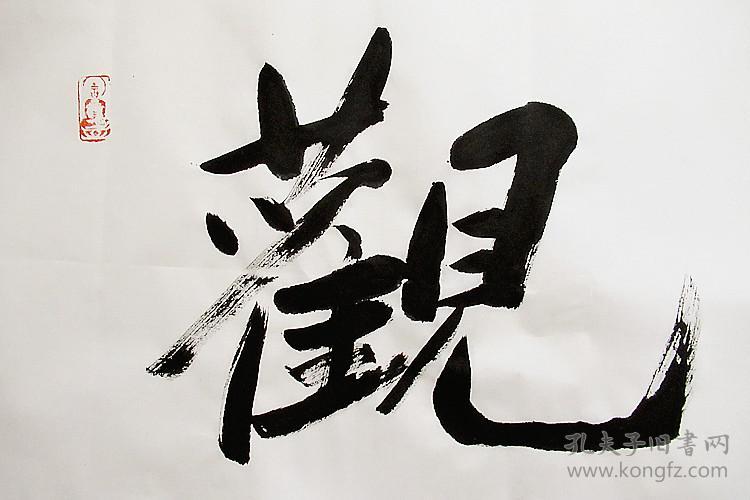 觀
孔夫子旧書网
www.kongfz.com